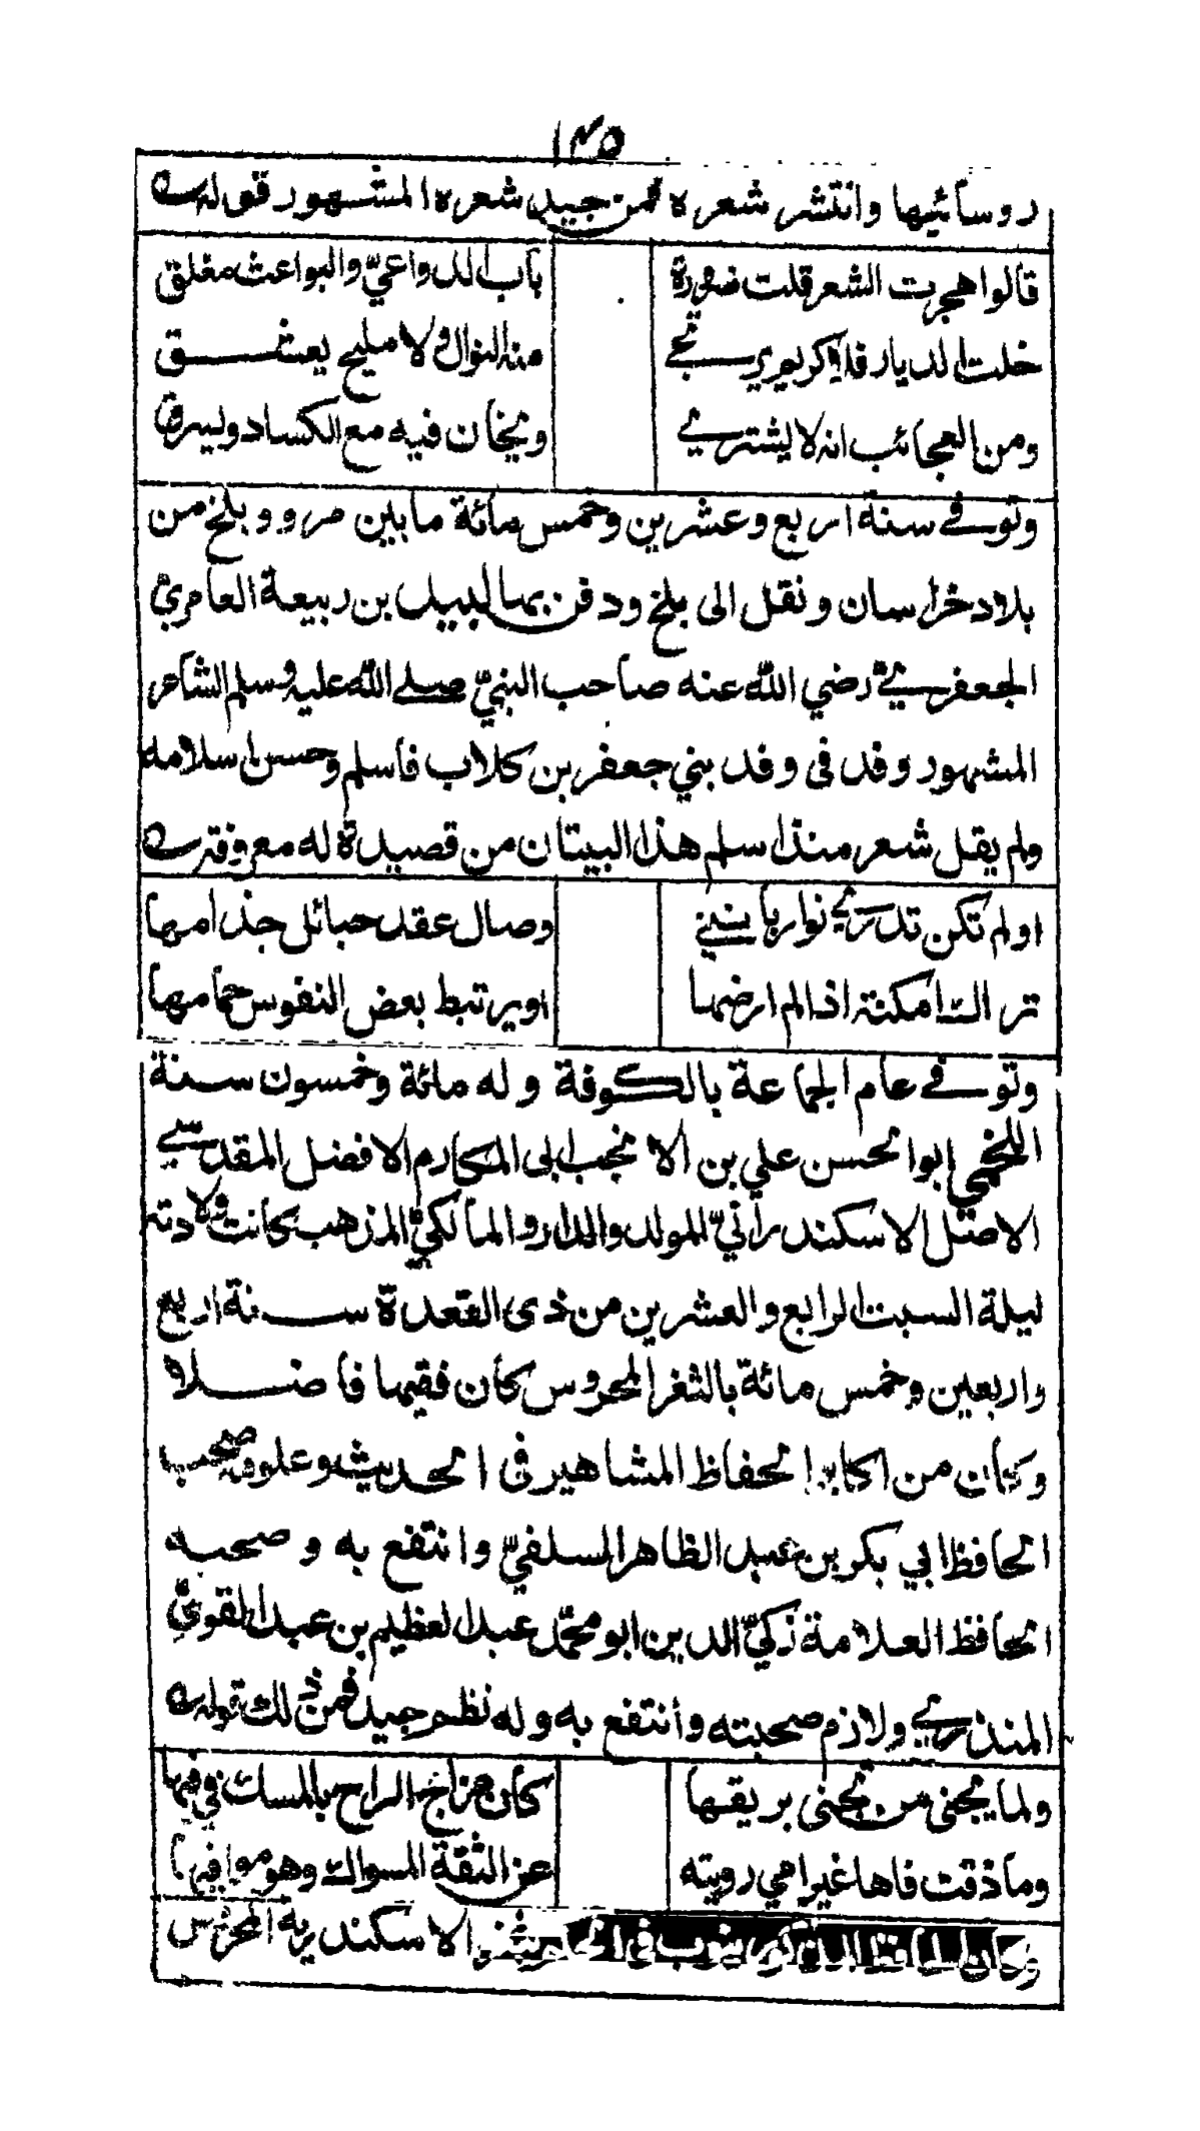 ١٣٥
روسائيها وانتشر شعره فمن جيد شعره المشهور قوله
قالوا هجرت الشعر قلت ضرورة باب الدواعي والبواعث مغلق
خلت الديار فلا كريم يرتجى منه النوال ولا مليح يعشق
ومن العجائب انه لا يشترى ويخان فيه مع الكساد ويسرق
وتوفى سنة اربع وعشرين وخمس مائة ما بين مرو وبلخ من
بلاد خراسان ونقل الى بلخ ودفن بها لبيد بن ربيعة العامري
الجعفري رضي الله عنه صاحب النبي صلى الله عليه وسلم الشاعر
المشهور وفد فى وفد بني جعفر بن كلاب فأسلم وحسن اسلامه
ولم يقل شعر منذ اسلم هذا البيتان من قصيدة له معروفة
اولم تكن تدري نوار بأنني وصال عقد حبائل جذامها
تراك امكنة اذا لم ارضها او يرتبط بعض النفوس حمامها
وتوفى عام الجماعة بالكوفة وله مائة وخمسون سنة
اللخمي ابو الحسن علي بن الانجب ابى المكارم الافضل المقدسي
الاصل الاسكندراني المولد والدار والمالكي المذهب كانت ولادته
ليلة السبت الرابع والعشرين من ذى القعدة سنة اربع
واربعين وخمس مائة بالثغر المحروس كان فقيها فاضلا
وكان من اكابر الحفاظ المشاهير فى الحديث وعلومه صحب
الحافظ ابي بكر بن عبد الظاهر السلفي وانتفع به وصحبه
الحافظ العلامة زكي الدين ابو محمد عبد العظيم بن عبد القوي
المنذري ولازم صحبته وأنتفع به وله نظم جيد فمن ذلك قوله
ولما يجنى من تجنى بريقها كأن مزاج الراح بالمسك في فيها
وما ذقت فاها غير اني رويته عن الثقة المسواك وهو موافيها
وكان الحافظ ينوب فى الحكم بثغر الاسكندرية المحروس